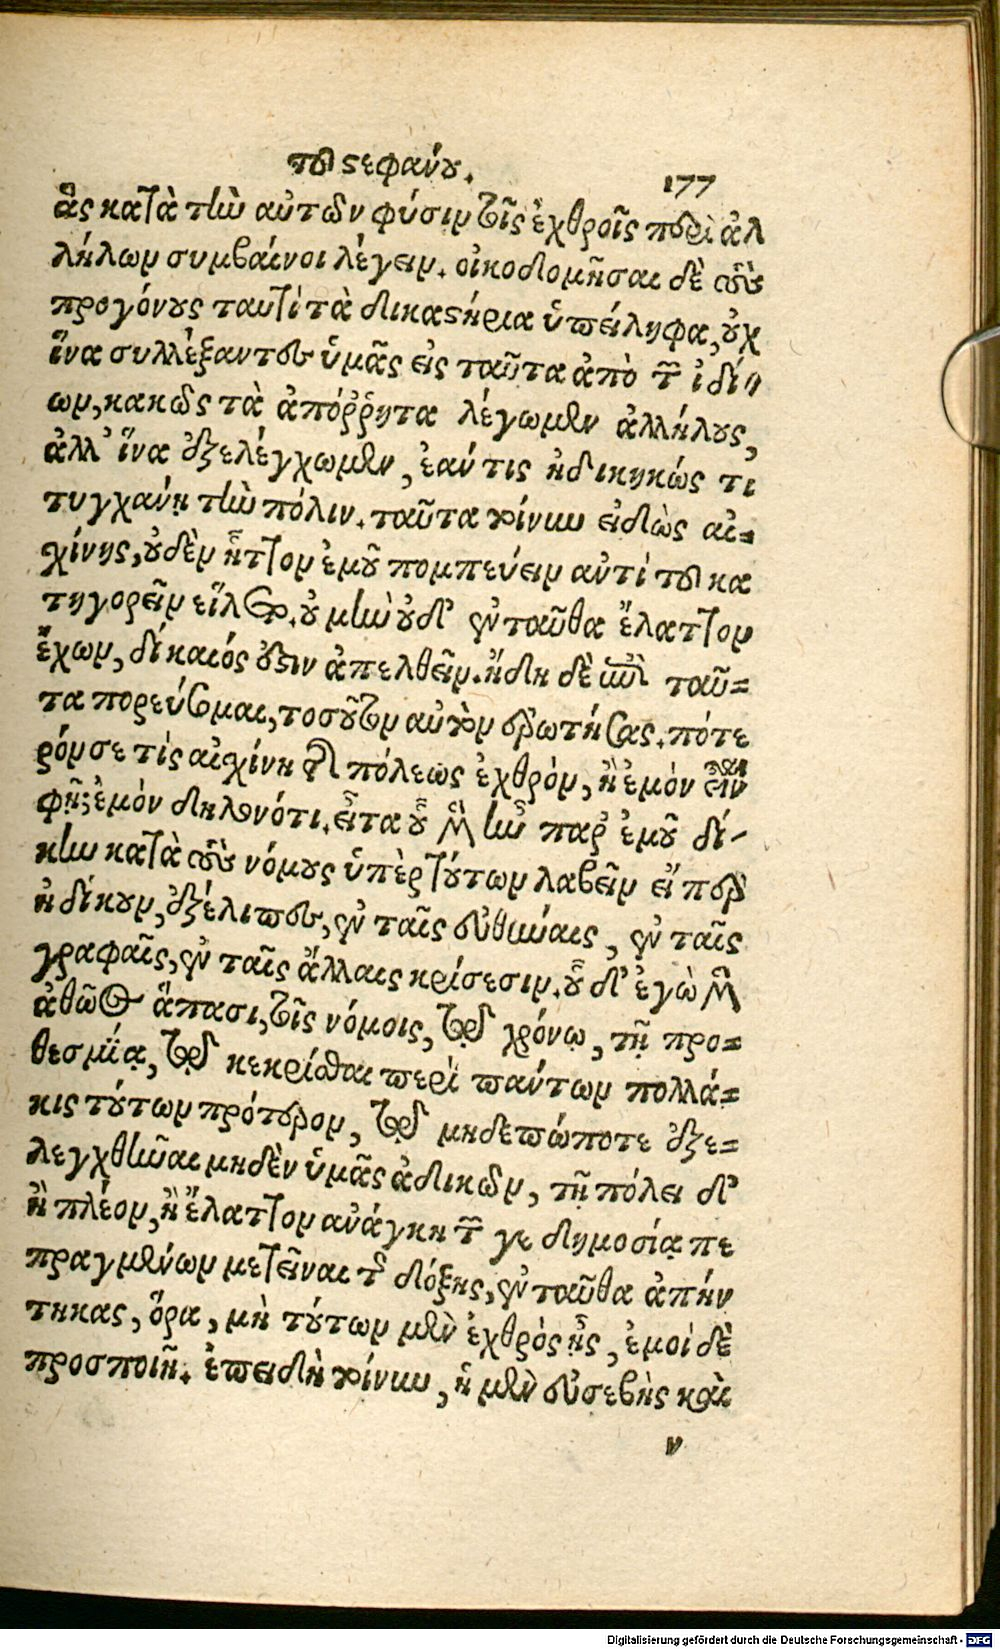 τοῦ στεφάνου.
177
ἃς κατὰ τὴν αὐτῶν φύσιν τοῖς ἐχθροῖς περὶ ἀλ
λήλων συμβαίνοι λέγειν. οἰκοδομῆσαι δὲ τοὺς
προγόνους ταυτὶ τὰ δικαστήρια ὑπείληφα, οὐχ
ἵνα συλλέξαντες ὑμᾶς εἰς ταῦτα ἀπὸ τῶν ἰδί
ων, κακῶς τὰ ἀπόῤῥητα λέγωμεν ἀλλήλους,
ἀλλ' ἵνα ἐξελέγχωμεν, ἐάν τις ἠδικηκώς τι
τυγχάνῃ τὴν πόλιν. ταῦτα τοίνυν εἰδὼς αἰ=
χίνης, οὐδὲν ἧττον ἐμοῦ πομπεύειν ἀντὶ τοῦ κα
τηγορεῖν εἵλετο. οὐ μὴν οὐδ' ἐνταῦθα ἔλαττον
ἔχων, δίκαιός ἐστιν ἀπελθεῖν. ἤδη δὲ ἐπὶ ταῦ=
τα πορεύσομαι, τοσοῦτον αὐτὸν ἐρωτήσας. πότε
ρόν σε τὶς αἰχίνη τῆς πόλεως ἐχθρὸν, ἢ ἐμὸν εἶναι
φῇ; ἐμὸν δηλονότι. εἶτα οὗ μὲν ἦν παρ' ἐμοῦ δί-
κην κατὰ τοὺς νόμους ὑπὲρ τούτων λαβεῖν εἴπερ
ἠδίκουν, ἐξέλιπες, ἐν ταῖς εὐθύναις, ἐν ταῖς
γραφαῖς, ἐν ταῖς ἄλλαις κρίσεσιν. οὗ δ' ἐγὼ μὲν
ἀθῶος ἅπασι, τοῖς νόμοις, τῷ χρόνῳ, τῇ προ=
θεσμίᾳ, τῷ κεκρίσθαι περὶ πάντων πολλά=
κις τούτων πρότερον, τῷ μηδεπώποτε ἐξε=
λεγχθῆναι μηδὲν ὑμᾶς ἀδικῶν, τῇ πόλει δ'
ἢ πλέον, ἢ ἔλαττον ἀνάγκη τῶν γε δημοσίᾳ πε
πραγμένων μετεῖναι τῆς δόξης, ἐνταῦθα ἀπήν
τηκας, ὅρα, μὴ τούτων μὲν ἐχθρὸς ᾖς, ἐμοὶ δὲ
προσποιῇ. ἐπειδὴ τοίνυν, ἡ μὲν εὐσεβὴς καὶ
ν
Digitalisierung gefördert durch die Deutsche Forschungsgemeinschaft - DFG